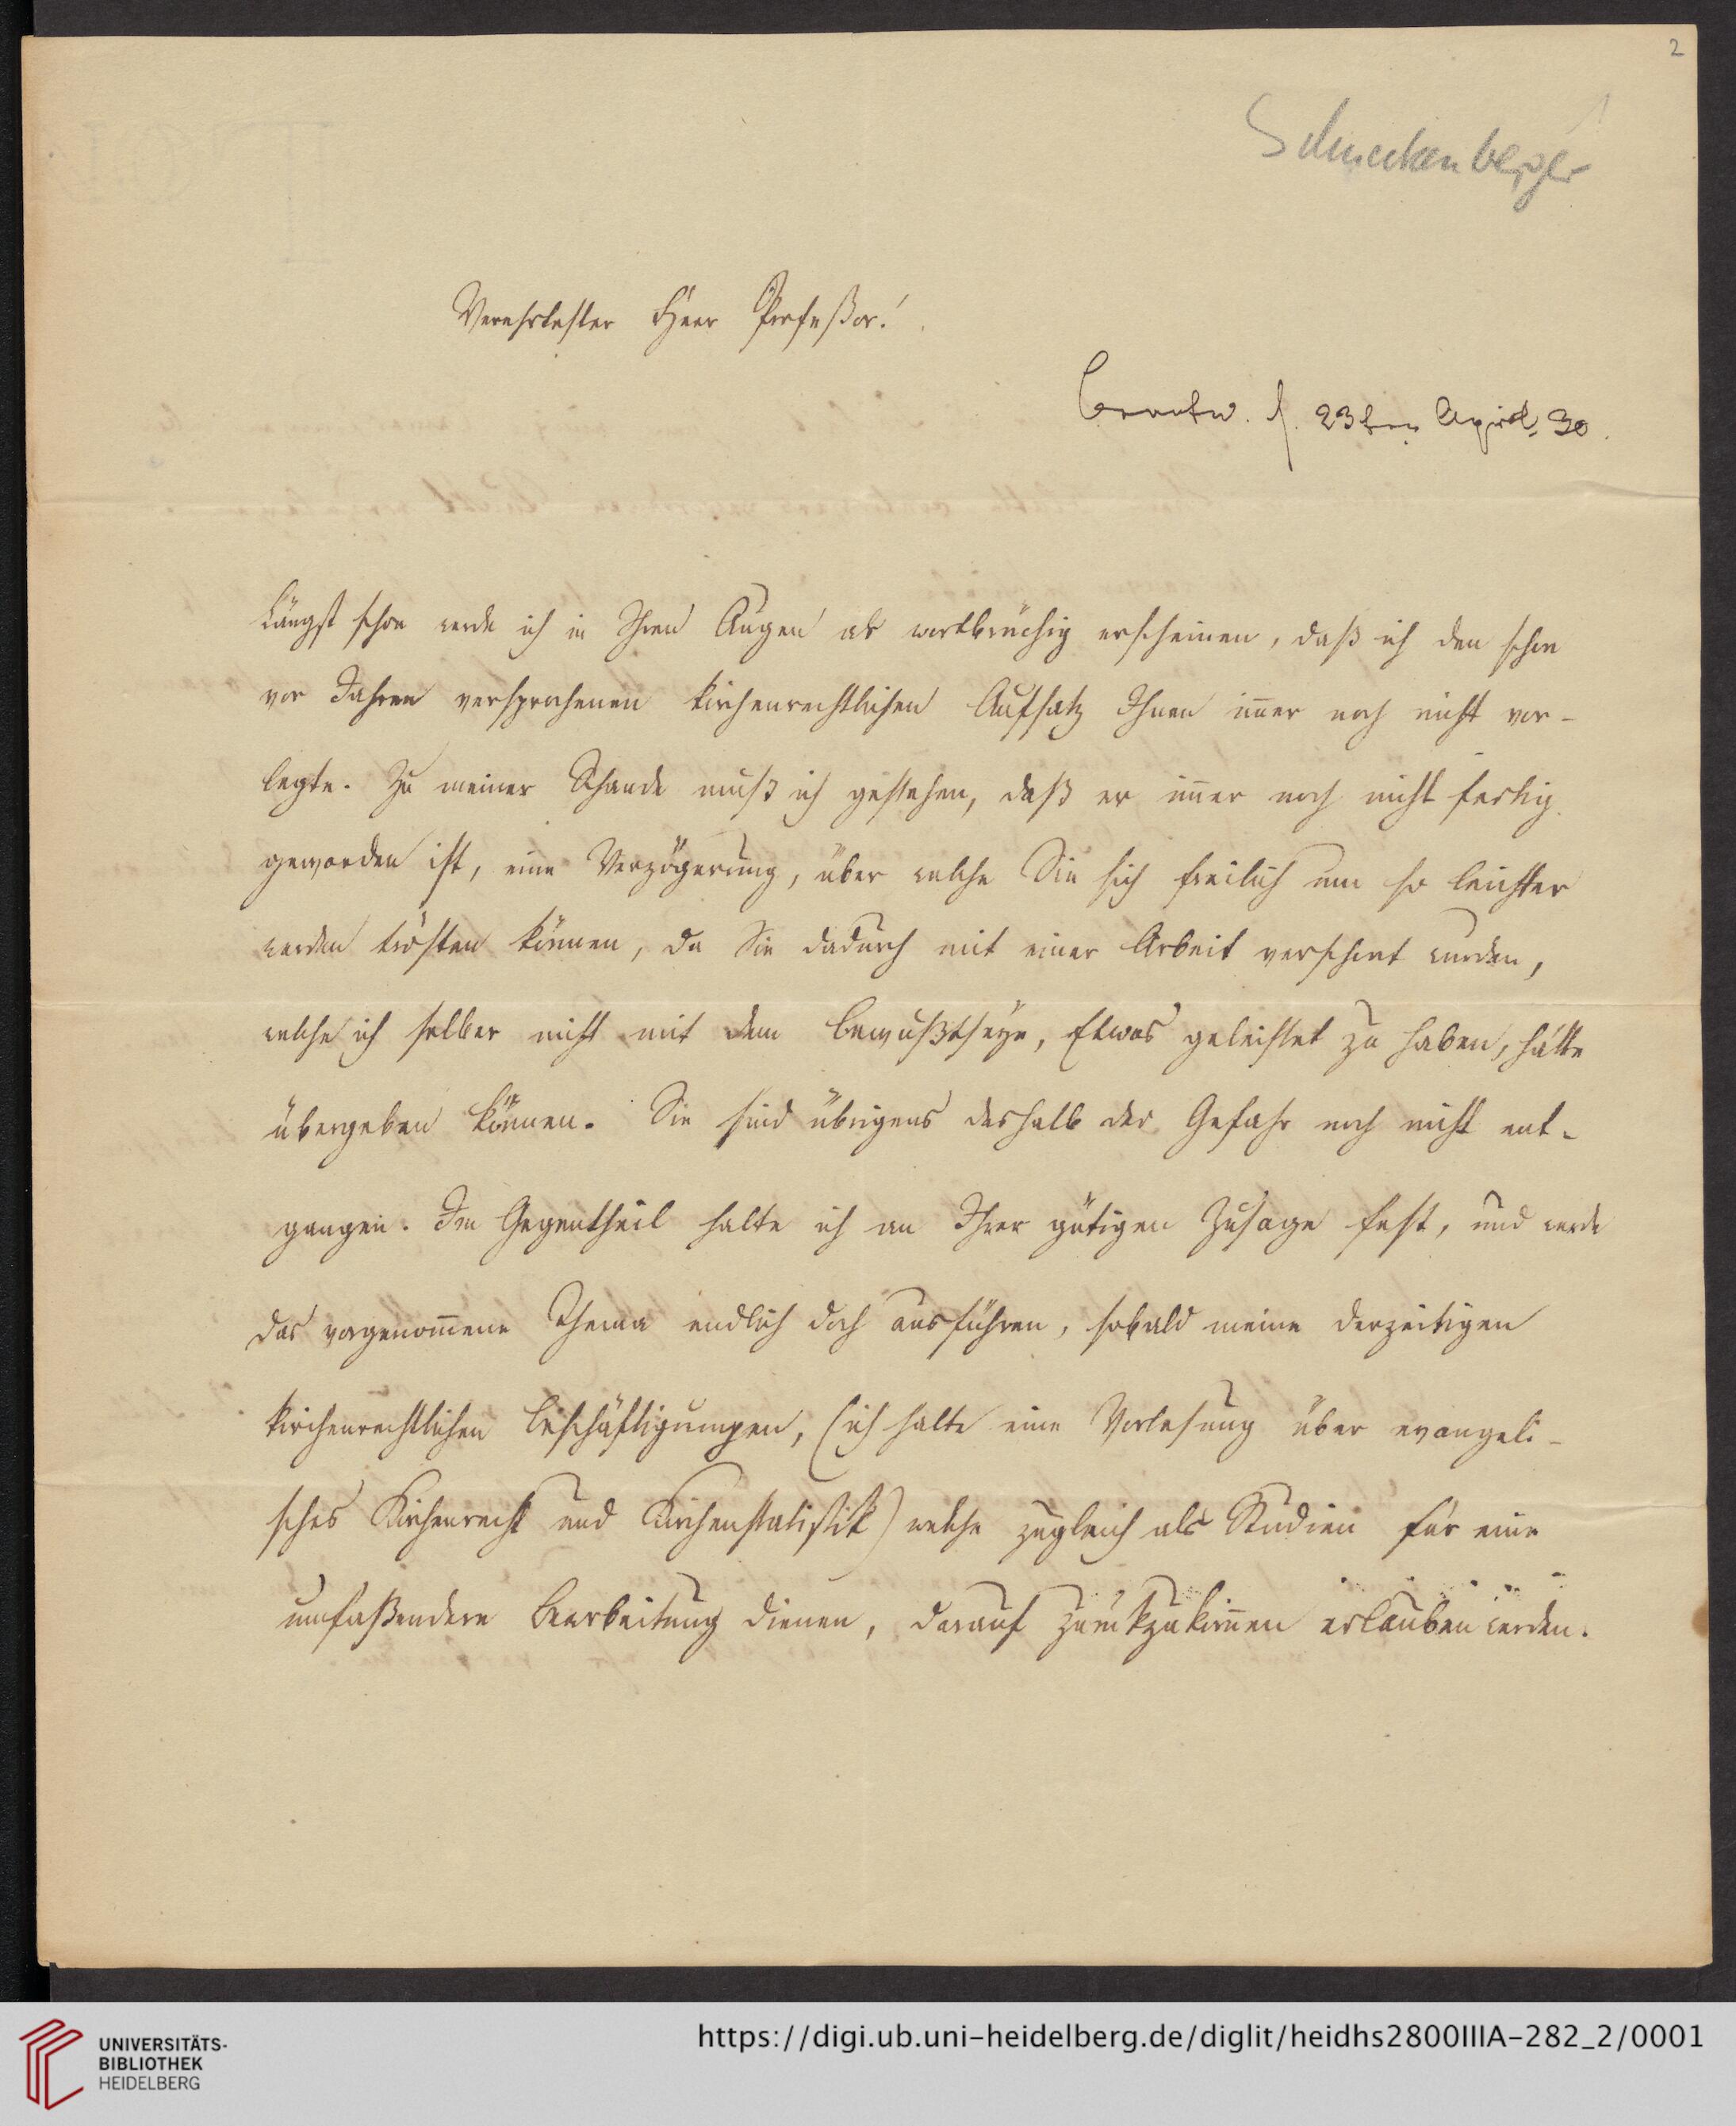 2
Schneckenberger
Verehrtester Herr Profeßor!
Beantw. d. 23ten April 30.
Längst schon werde ich in Ihren Augen als wortbrüchig erscheinen, daß ich den schon
vor Jahren versprochenen kirchenrechtlichen Aufsatz Ihnen im̄er noch nicht vor-
legte. Zu meiner Schande muß ich gestehen, daß er im̄er noch nicht fertig
geworden ist, eine Verzögerung, über welche Sie sich freilich um so leichter
werden trösten können, da Sie dadurch mit einer Arbeit verschont wurden,
welche ich selber nicht mit dem Bewußtseyn, Etwas geleistet zu haben, hätte
übergeben können. Sie sind übrigens deshalb der Gefahr noch nicht ent-
gangen. Im Gegentheil halte ich an Ihrer gütigen Zusage fest, und werde
das vorgenom̄ene Thema endlich doch ausführen, sobald meine derzeitigen
kirchenrechtlichen Beschäftigungen, (ich halte eine Vorlesung über evangeli-
sches Kirchenrecht und Kirchenstatistik) welche zugleich als Studien für eine
umfaßendere Bearbeitung dienen, darauf zurückzukom̄en erlauben werden.
UNIVERSITÄTS-
BIBLIOTHEK
HEIDELBERG
https://digi.ub.uni-heidelberg.de/diglit/heidhs2800IIIA-282_2/0001